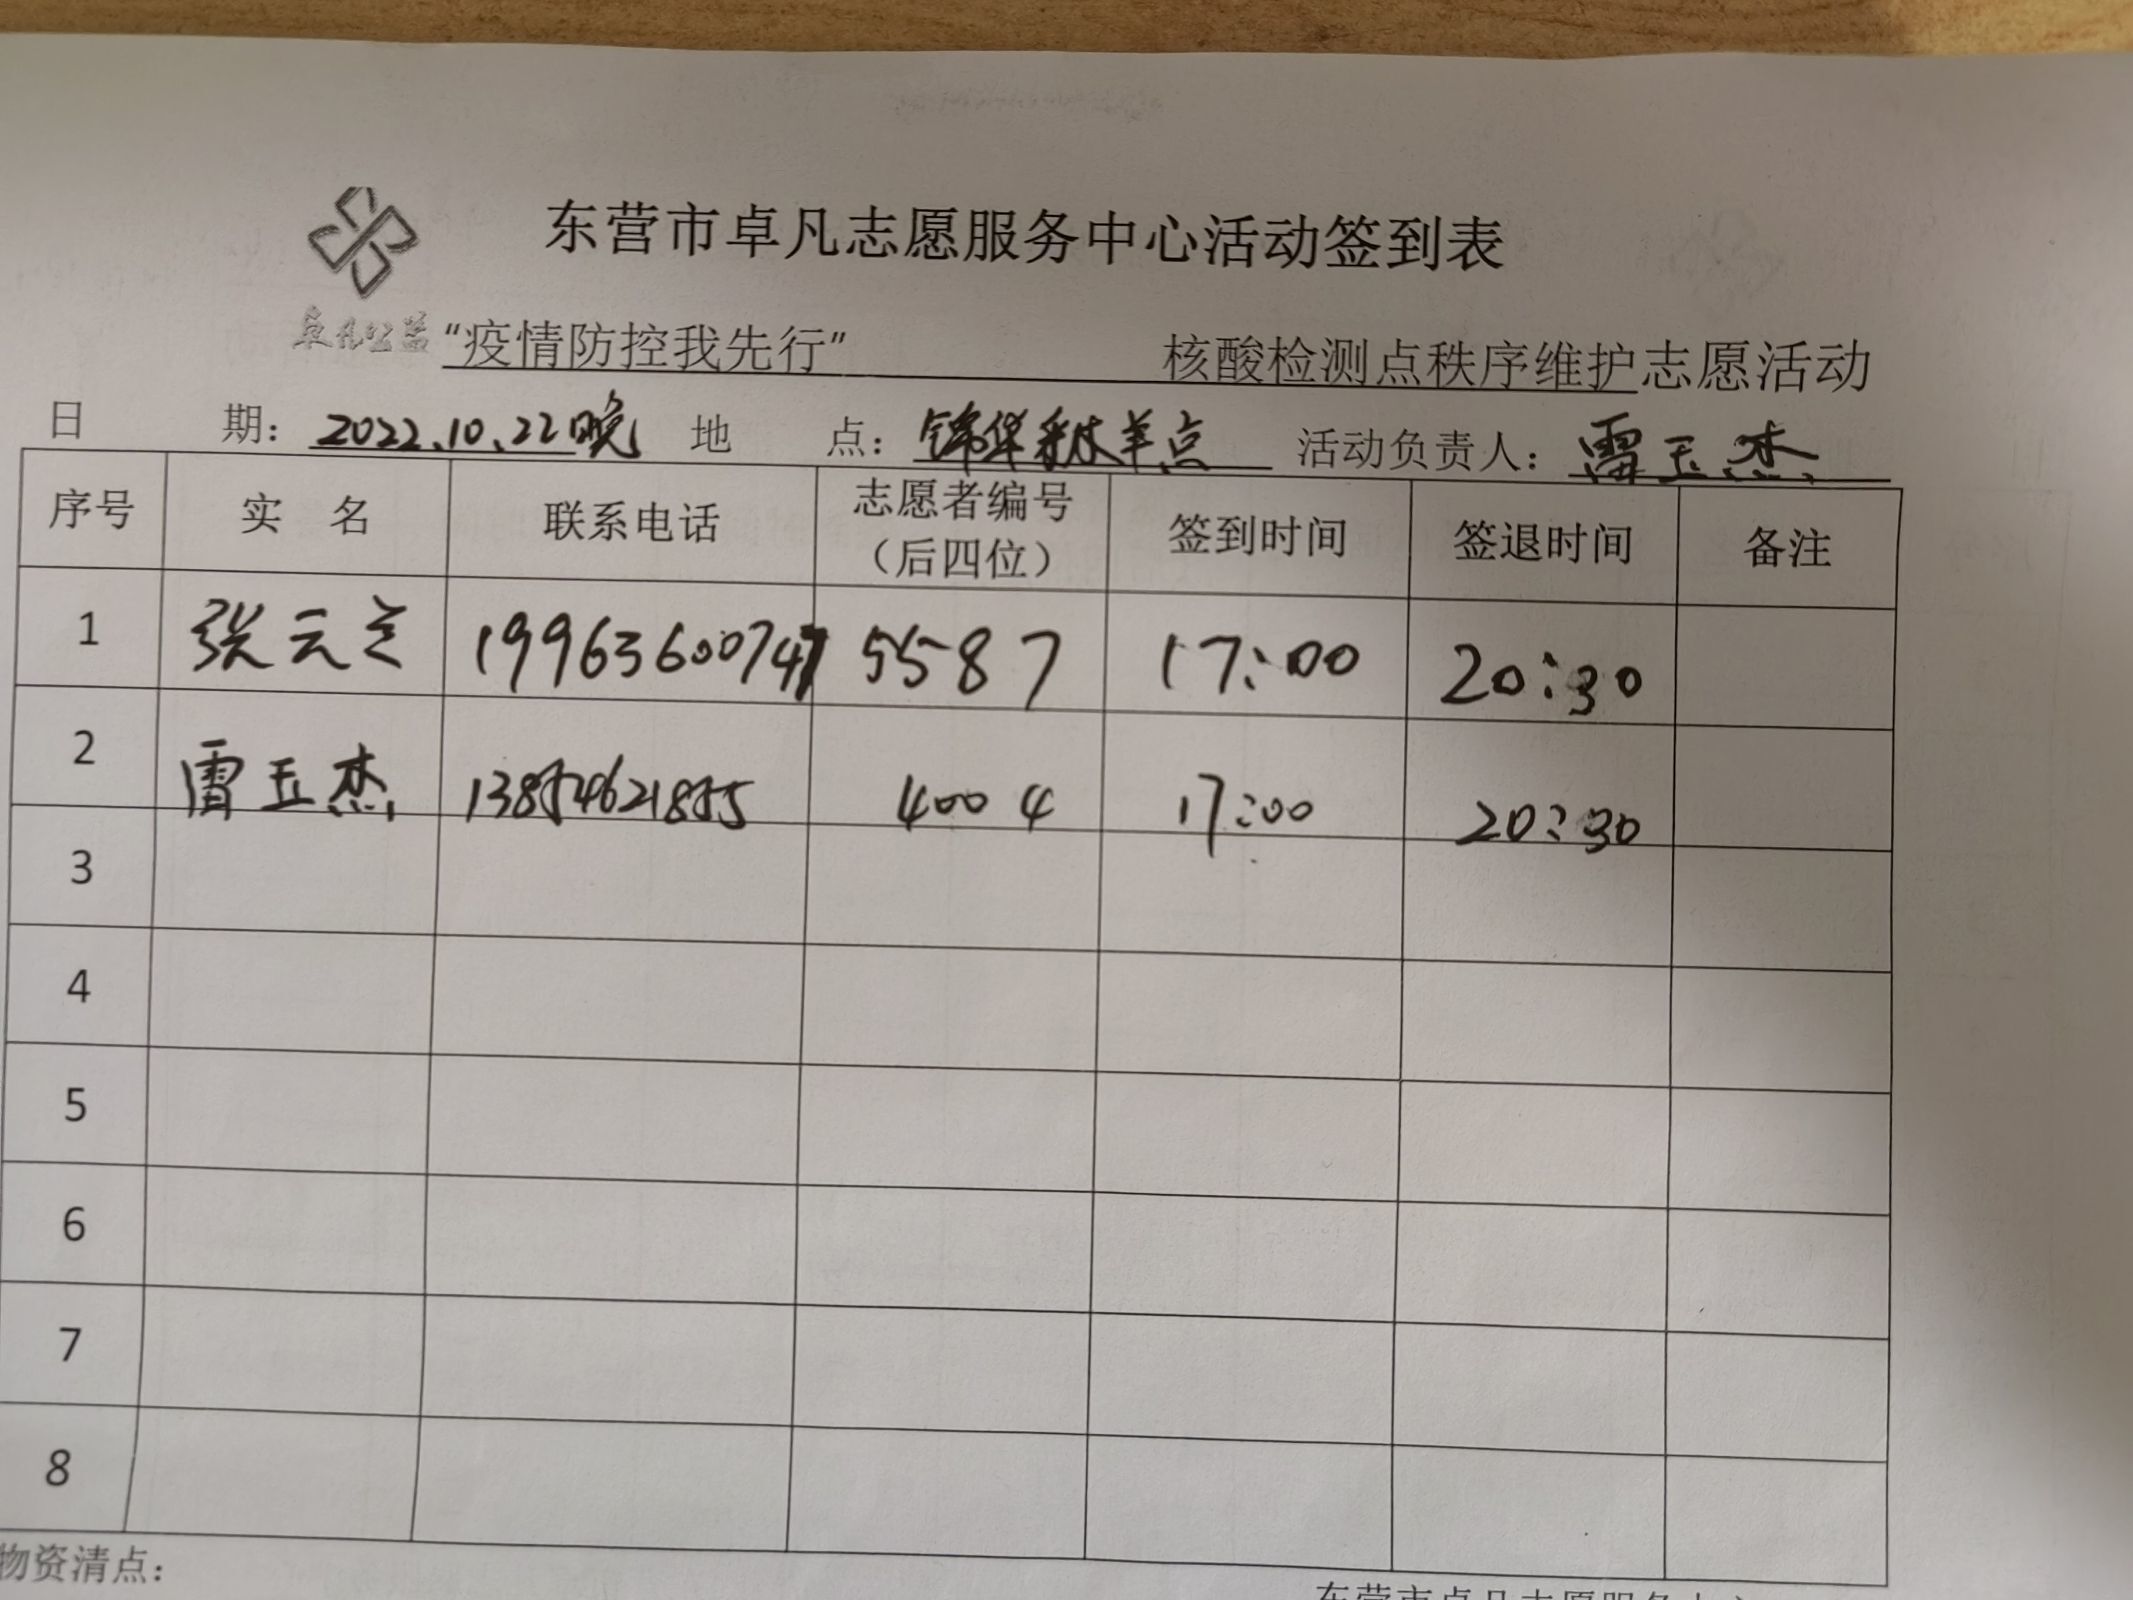 东营市卓凡志愿服务中心活动签到表
卓凡公益 “疫情防控我先行” 核酸检测点秩序维护志愿活动
日 期: 2022.10.22晚 地 点: 锦华 点 活动负责人: 雷玉杰
序号 实 名 联系电话 志愿者编号（后四位） 签到时间 签退时间 备注
1 张云兰 19963600747 5587 17:00 20:30
2 雷玉杰 13854621855 4004 17:00 20:30
3
4
5
6
7
8
物资清点:
东营市卓凡志愿服务中心